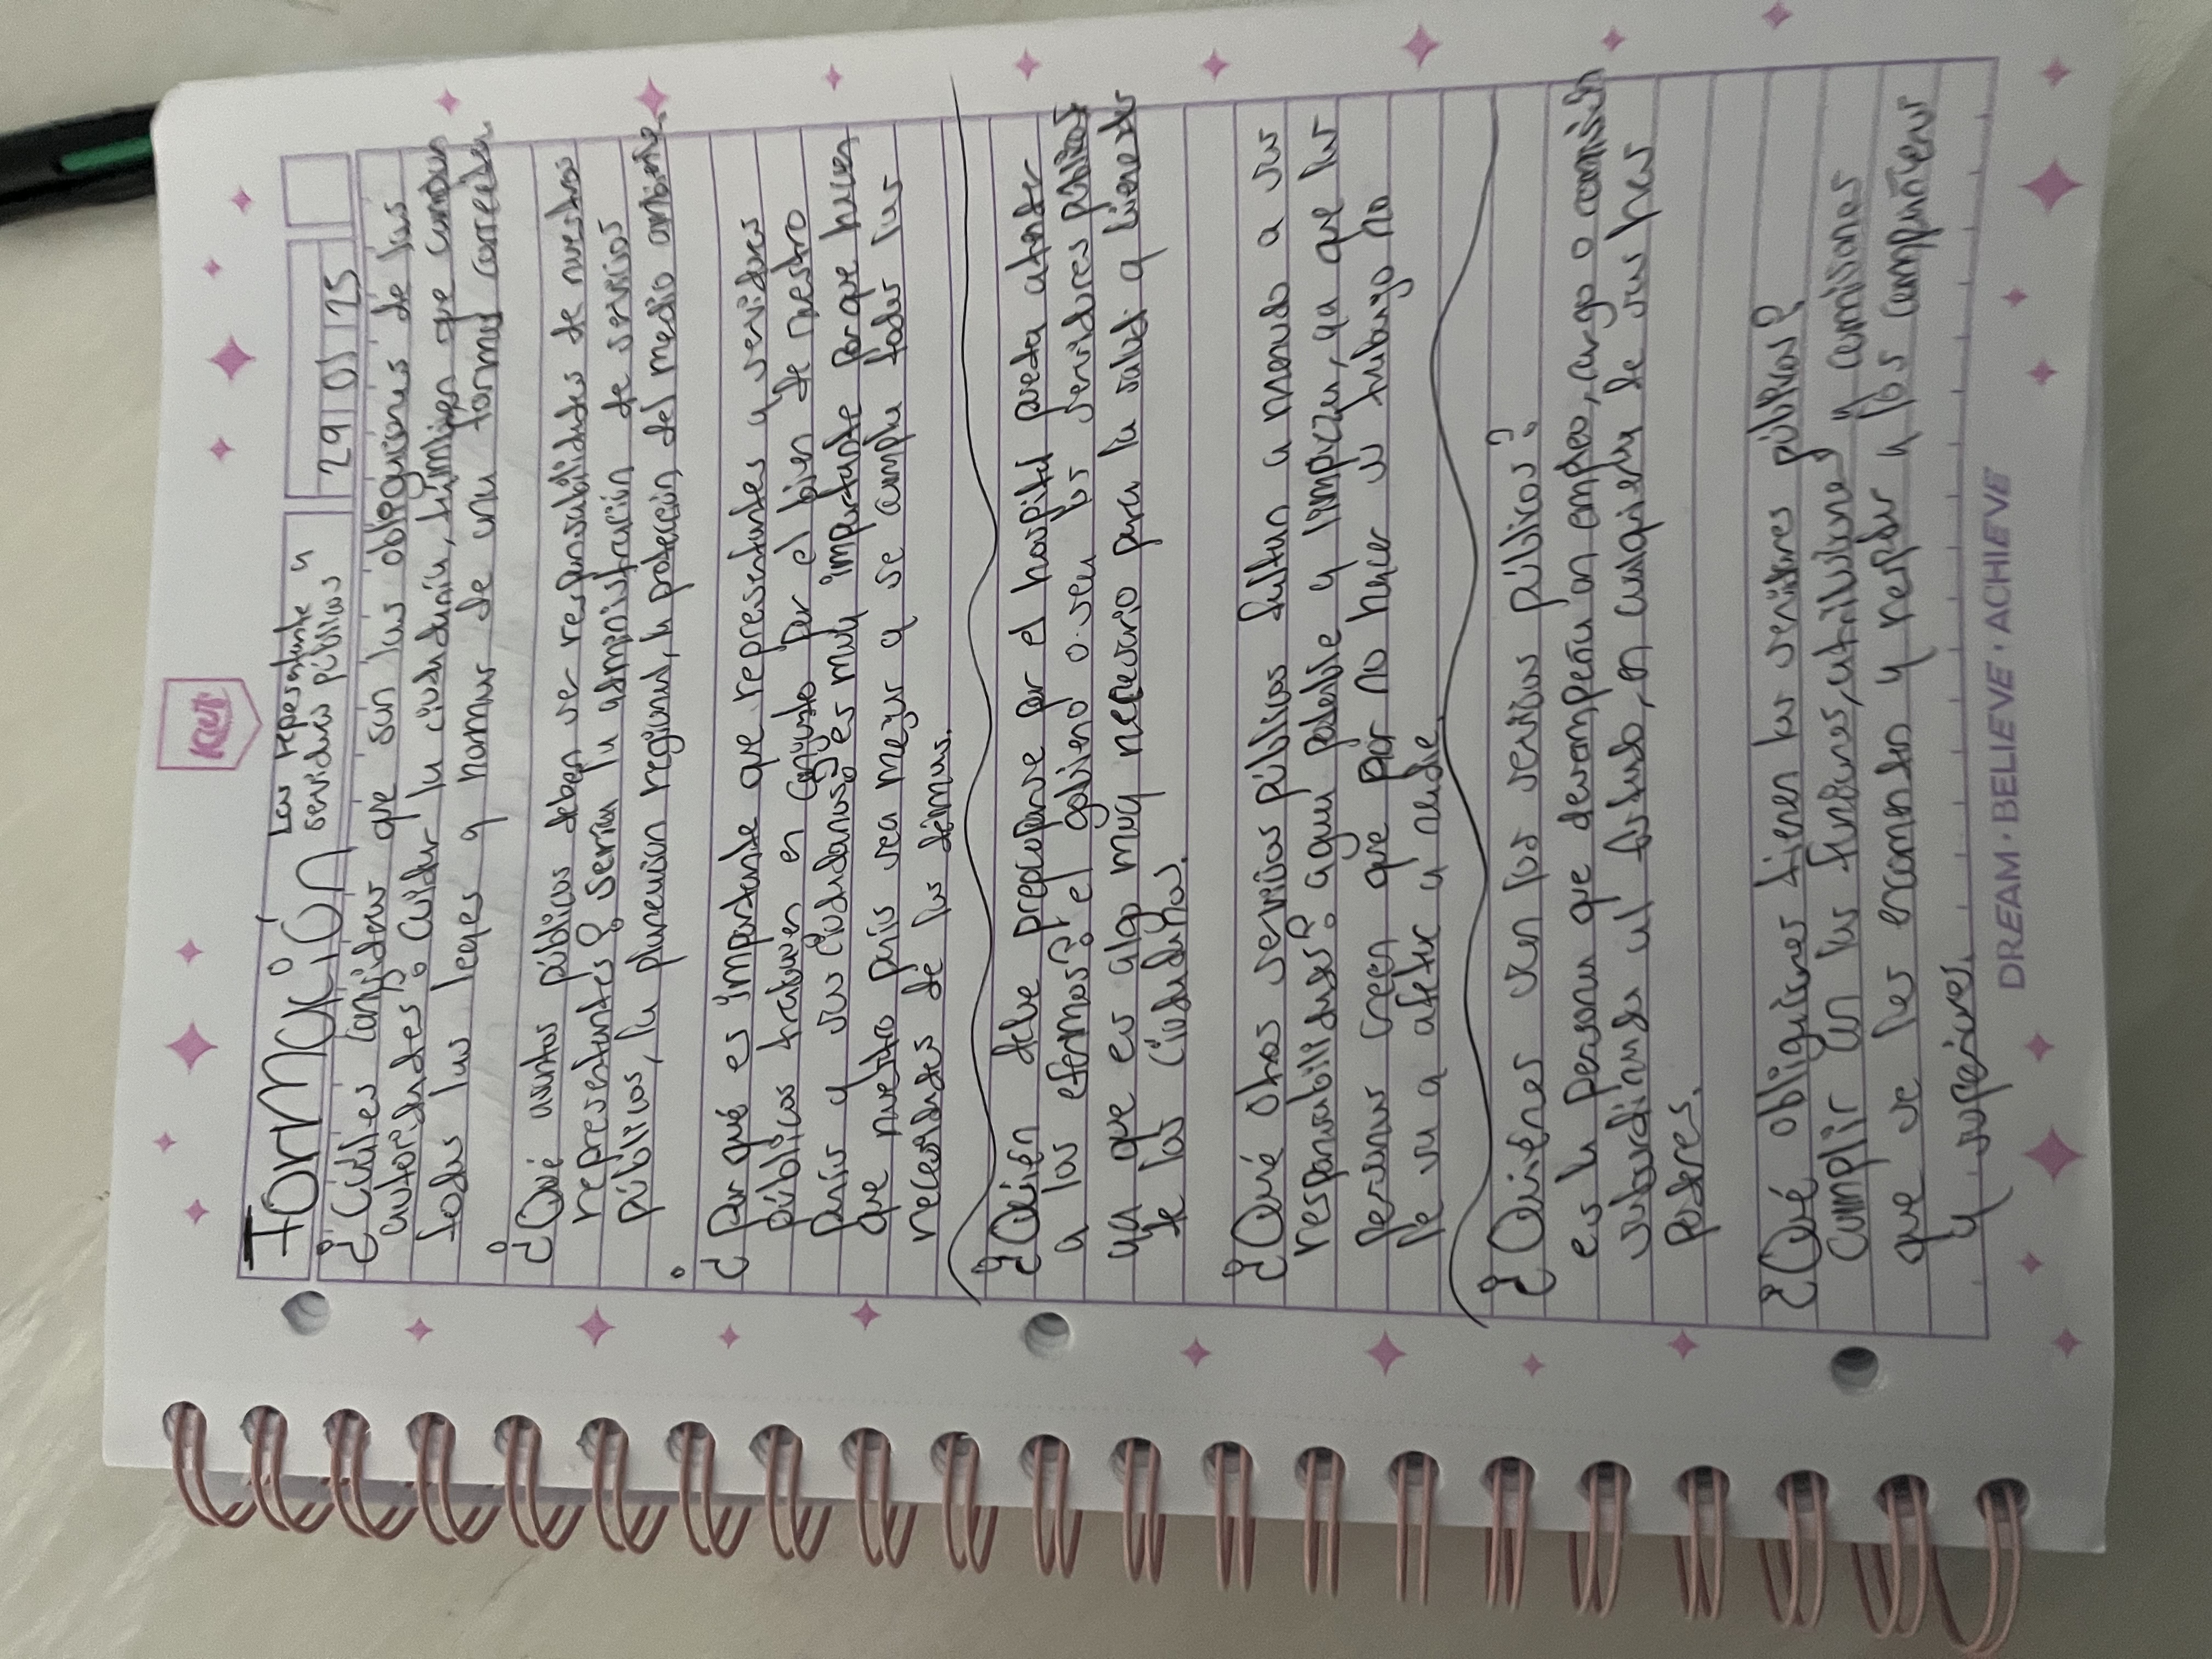 Kut
Formación
Los representante y
servidores públicos
29 05 25
¿Cuáles consideras que son las obligaciones de las
autoridades? Cuidar la ciudadanía, también que cumplan
todas las leyes y normas de una forma correcta.
¿Qué asuntos públicos deben ser responsabilidades de nuestros
representantes? Sería la administración de servicios
públicos, la planeación regional, la protección del medio ambiente.
¿Por qué es importante que representantes y servidores
públicos trabajen en conjunto por el bien de nuestro
país y sus ciudadanos? es muy importante porque hacen
que nuestro país sea mejor y se cumpla todas las
necesidades de los demás.
¿Quién debe preocuparse por el hospital pueda atender
a los efermos? el gobierno o sea los servidores públicos
ya que es algo muy necesario para la salud y bienestar
de los ciudadanos.
¿Qué otros servicios públicos faltan a menudo a sus
responsabilidades? agua potable y limpieza, ya que las
personas creen que por no hacer su trabajo no
le va a afectar a nadie.
¿Quiénes son los servidos públicos?
es la persona que desempeña un empleo, cargo o comisión
subordinada al Estado, en cualquiera de sus tres
Poderes.
¿Qué obligaciones tienen los servidores públicos?
Cumplir con las funciones, atribuciones y comisiones
que se les encomiendan y respetar a los compañeros
y superiores.
DREAM · BELIEVE · ACHIEVE